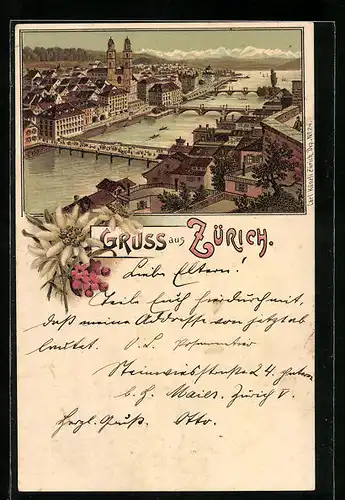 GRUSS aus ZÜRICH.
Carl Künzli Zürich, Dep. No 24.
Liebe Eltern!
Teile Euch hierdurch mit,
daß meine Addresse von jetzt ab
lautet. O. L.
Steinwiesstraße 24.
b. H. Maier. Zürich V.
Herzl. Gruß. Otto.